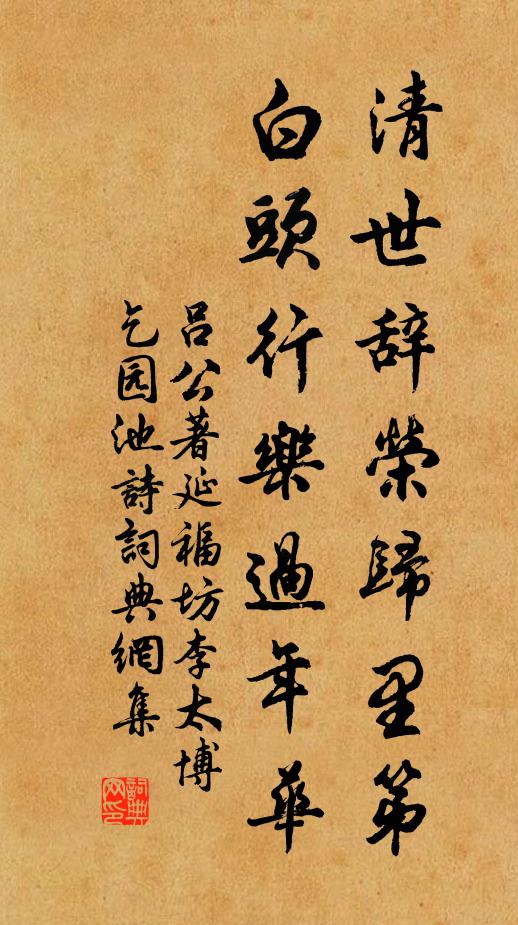 清世辞榮歸里第
白頭行樂過年華
吕公著延福坊李太博
乞园池詩詞典網集
詞典
网印